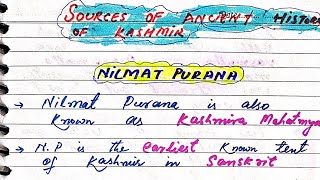 SOURCES OF ANCIENT HISTORY
OF KASHMIR
NILMAT PURANA
→ Nilmat Purana is also
known as Kashmira Mahatmya
→ N.P is the earliest known text
of Kashmir in Sanskrit